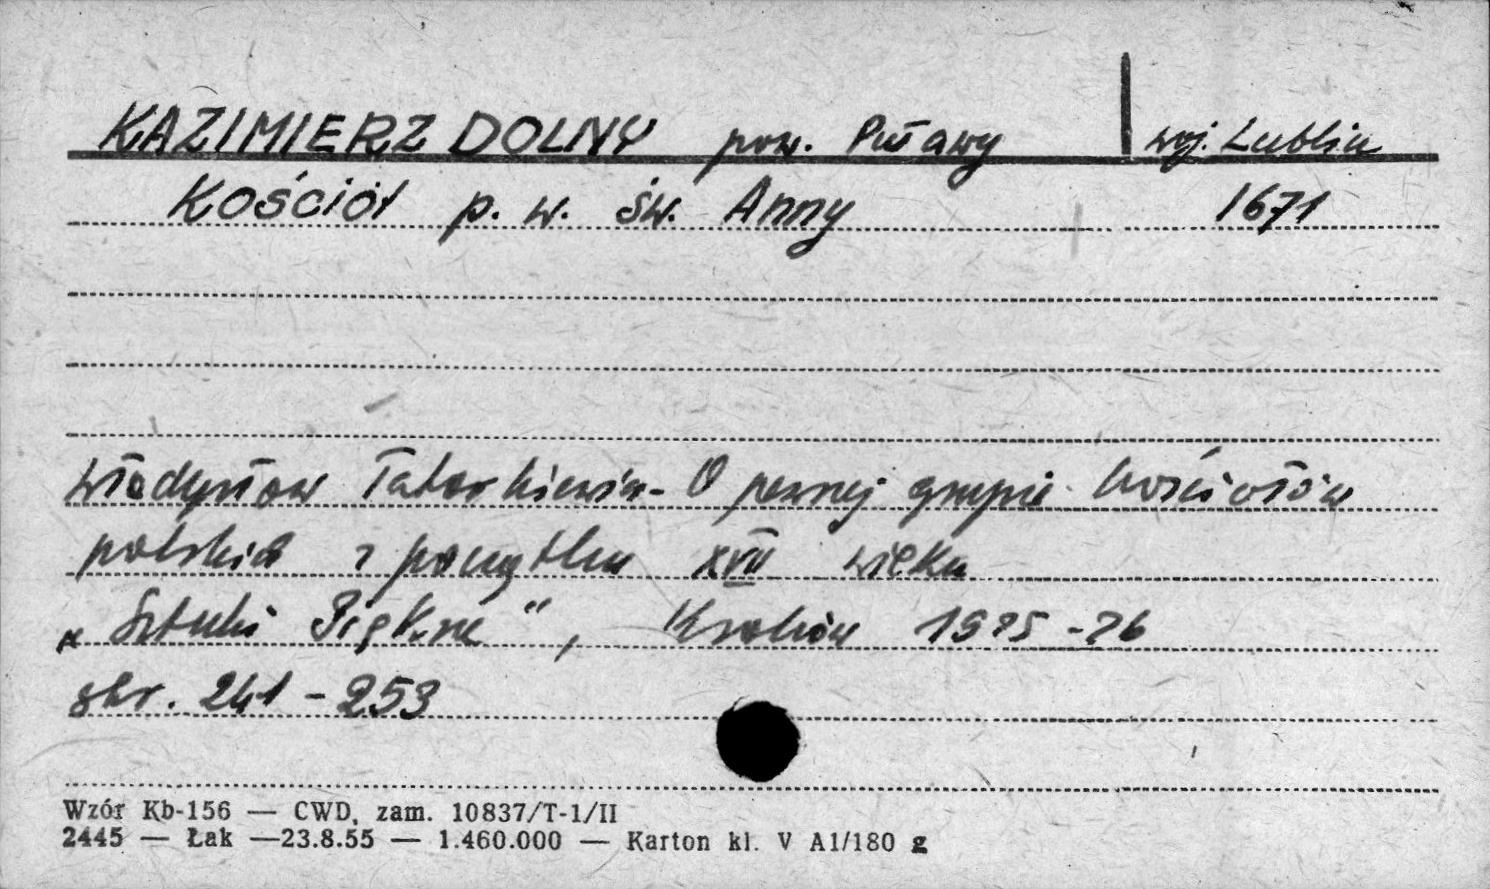 KAZIMIERZ DOLNY pow. Puławy woj. Lublin
Kościół p. w. św. Anny 1671
Władysław Tatarkiewicz - O pewnej grupie kościołów
polskich z początku XVII wieku
„Sztuki Piękne", Kraków 1925-26
str. 241-253
Wzór Kb-156 — CWD, zam. 10837/T-1/II
2445 — Łak —23.8.55 — 1.460.000 — Karton kl. V A1/180 g